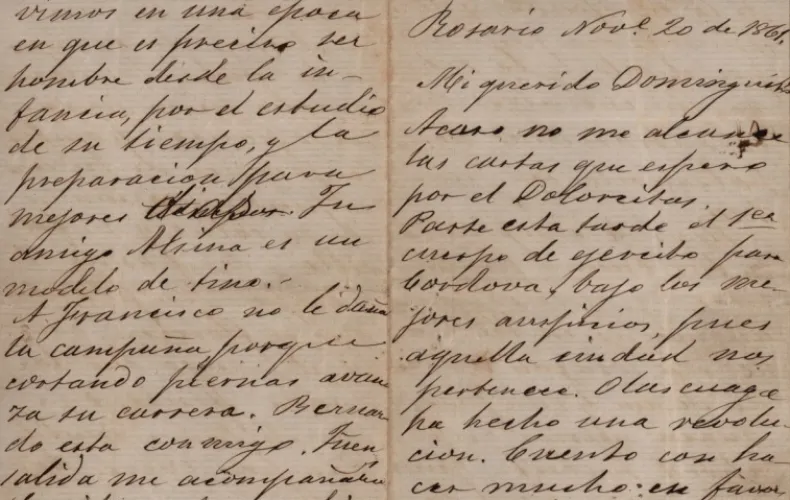 vimos en una época
en que es preciso ser
hombre desde la in-
fancia, por el estudio
de su tiempo, y la
preparacion para
mejores Tu
amigo Alsina es un
modelo de tino.-
A Francisco no le daña
la campaña porque
cortando piernas avan
za su carrera. Bernar
do esta conmigo. Fuen
salida me acompañara
Rosario Nove 20 de 1861.
Mi querido Dominguito
Acaso no me alcance
las cartas que espero
por el Dolorcitas.
Parte esta tarde el 1er
cuerpo de ejercito para
Cordova, bajo los me-
jores auspicios, pues
aquella ciudad nos
pertenece. Olascuaga
ha hecho una revolu-
cion. Cuento con ha
cer mucho en favor